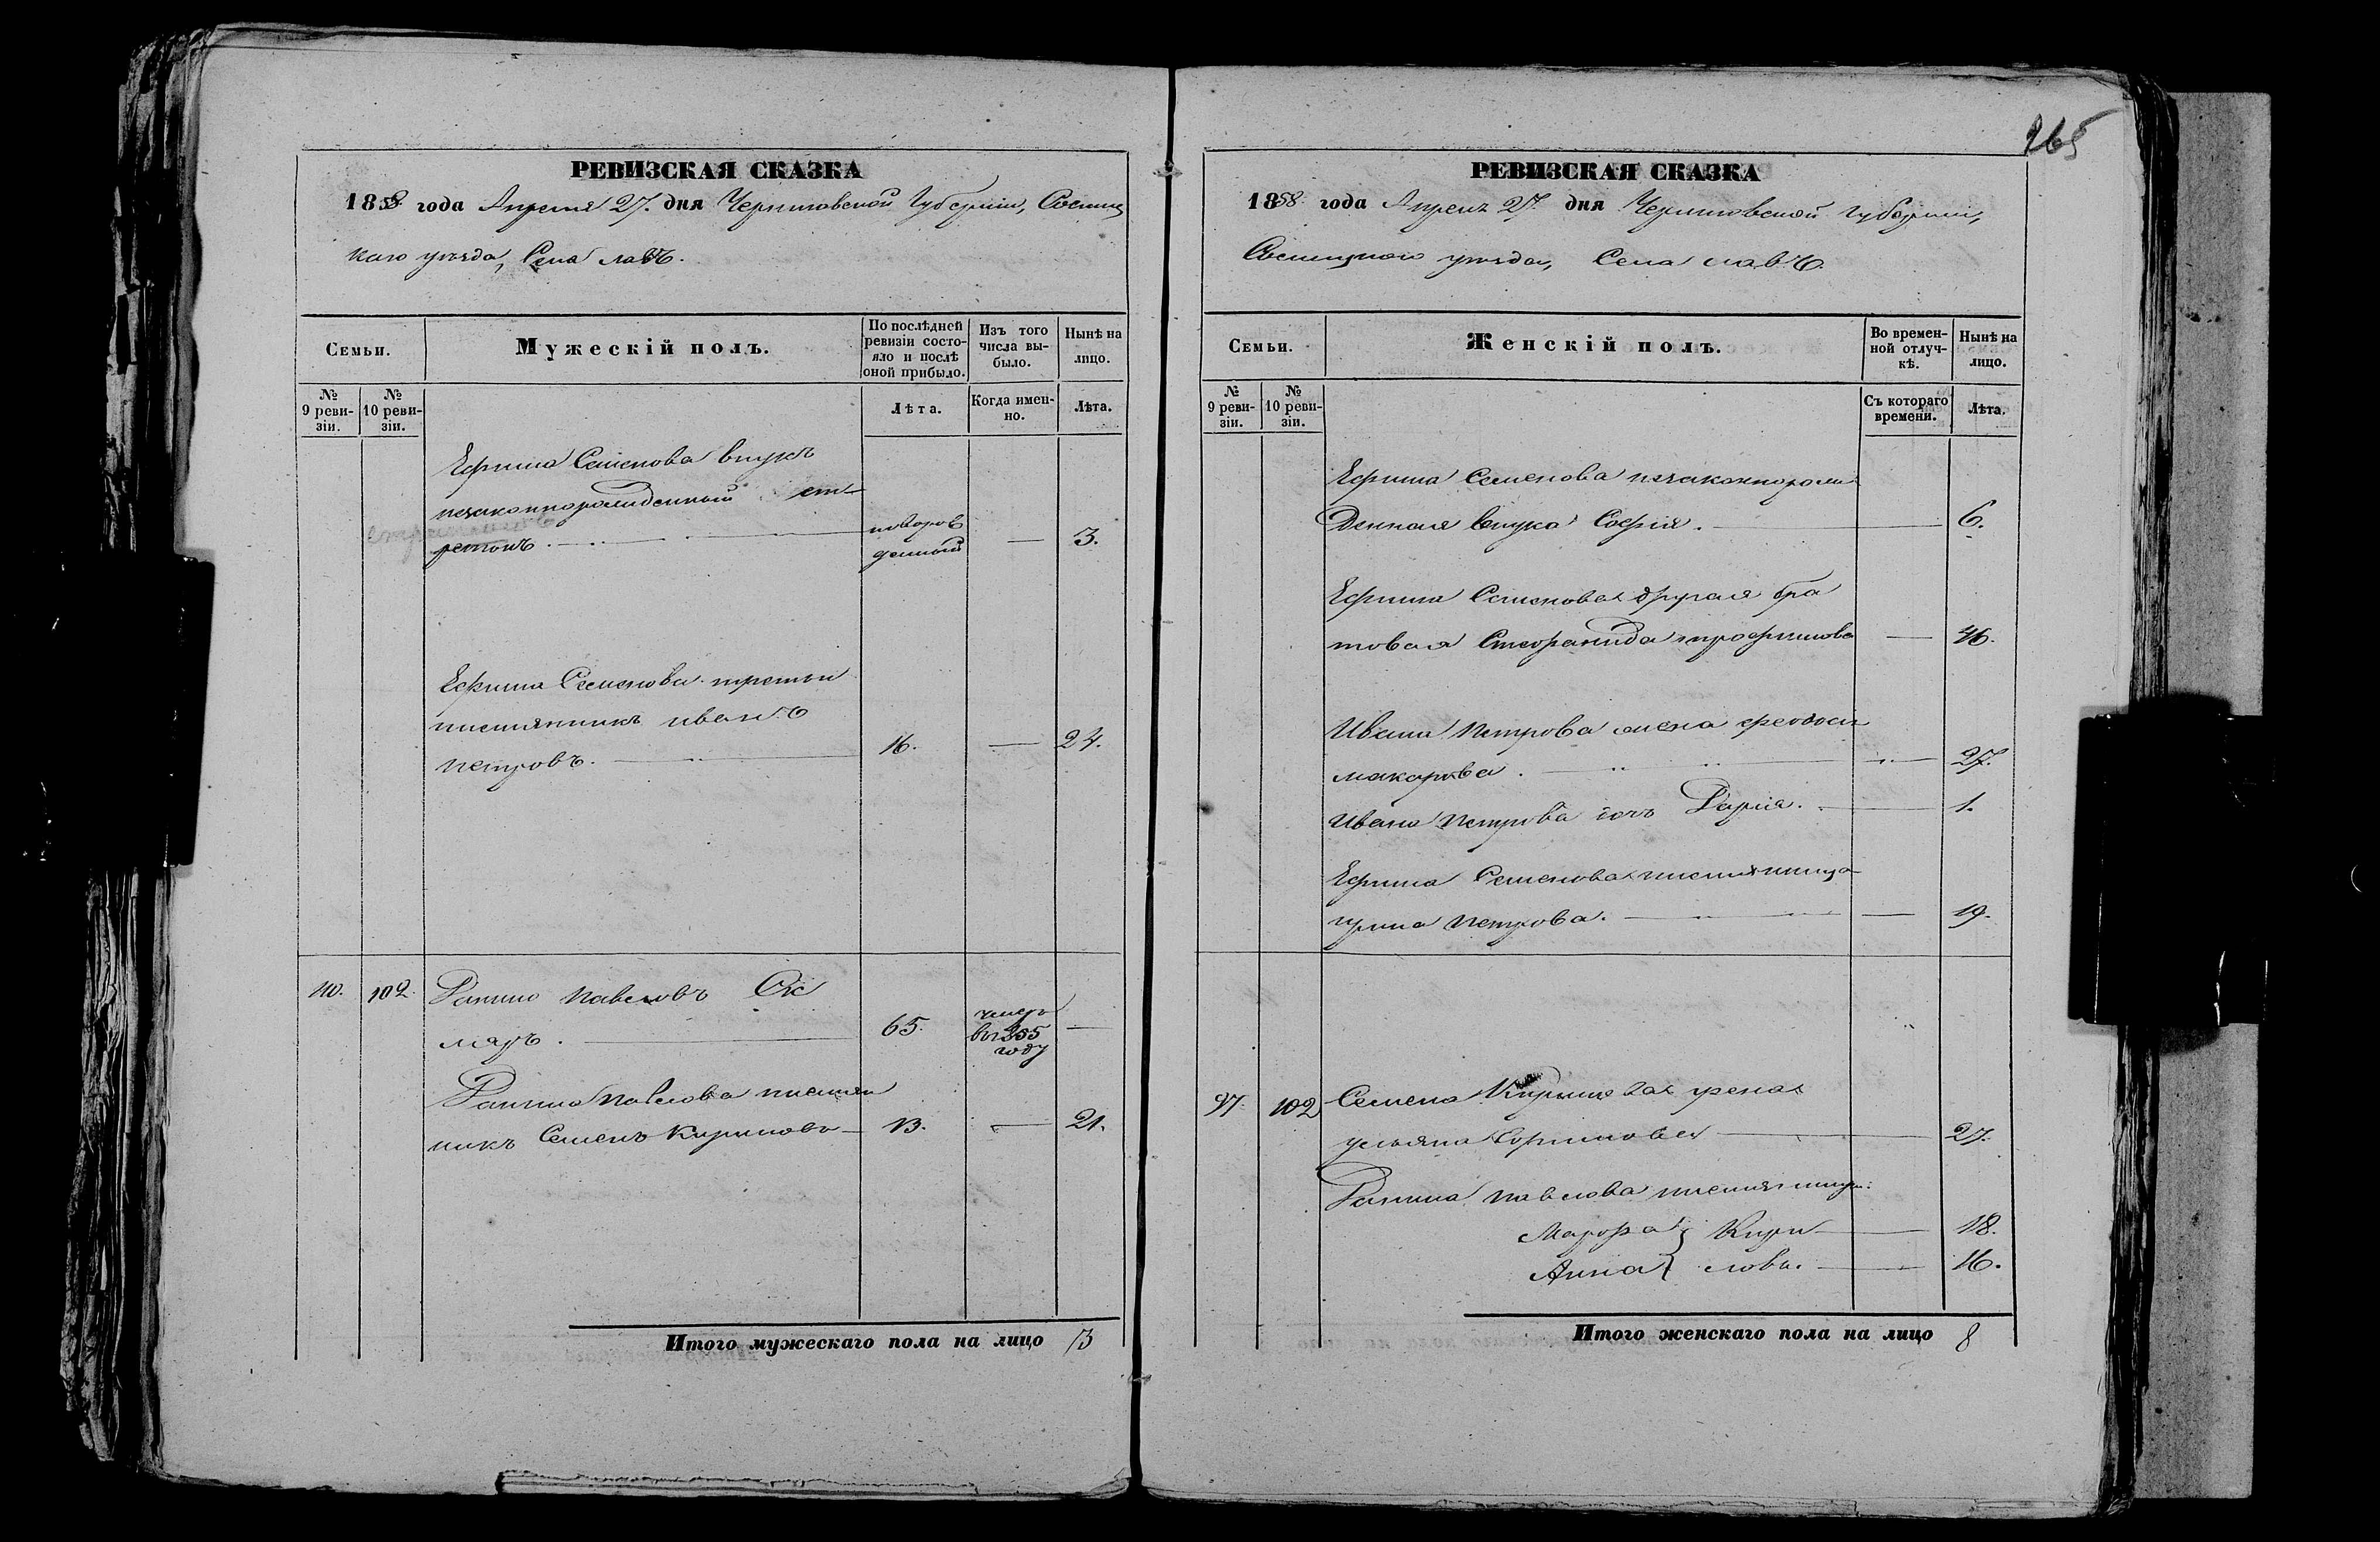 265
РЕВИЗСКАЯ СКАЗКА
1858 года Апреля 27. дня Черниговской Губернии, Сосниц
каго уезда, Села лавъ.
Семьи.
Мужескій полъ.
По послѣдней ревизіи состояло и послѣ оной прибыло.
Изъ того числа выбыло.
Нынѣ на лицо.
№ 9 ревизіи.
№ 10 ревизіи.
Лѣта.
Когда именно.
Лѣта.
Ефима Семенова внукъ
незаконнорожденный
новорож
денный
— 3.
Ефима Семенова третьи
племянникъ иванъ
петровъ. 16. — 24.
110. 102. павловъ
65. умеръ
въ 1855
году —
павлова племян
никъ Семенъ Кириловъ — 13. — 21.
Итого мужескаго пола на лицо 3
РЕВИЗСКАЯ СКАЗКА
1858 года Апреля 27. дня Черниговской губернии,
Сосницкаго уезда, Села лавъ.
Семьи.
Женскій полъ.
Во временной отлучкѣ.
Нынѣ на лицо.
№ 9 ревизіи.
№ 10 ревизіи.
Съ котораго времени.
Лѣта.
Ефима Семенова незаконнорож
денная внука Софія. 6.
Ефима Семенова другая бра
товая — 46.
Ивана петрова жена феодосия
макарова. — 27.
Ивана петрова дочь Дарія. 1.
Ефима Семенова племянница
ирина петрова. — 19.
97. 102 Семена Кирилова жена
ульяна 27.
павлова племянницы:
Марфа } Кири 18.
Анна } лова. 16.
Итого женскаго пола на лицо 8